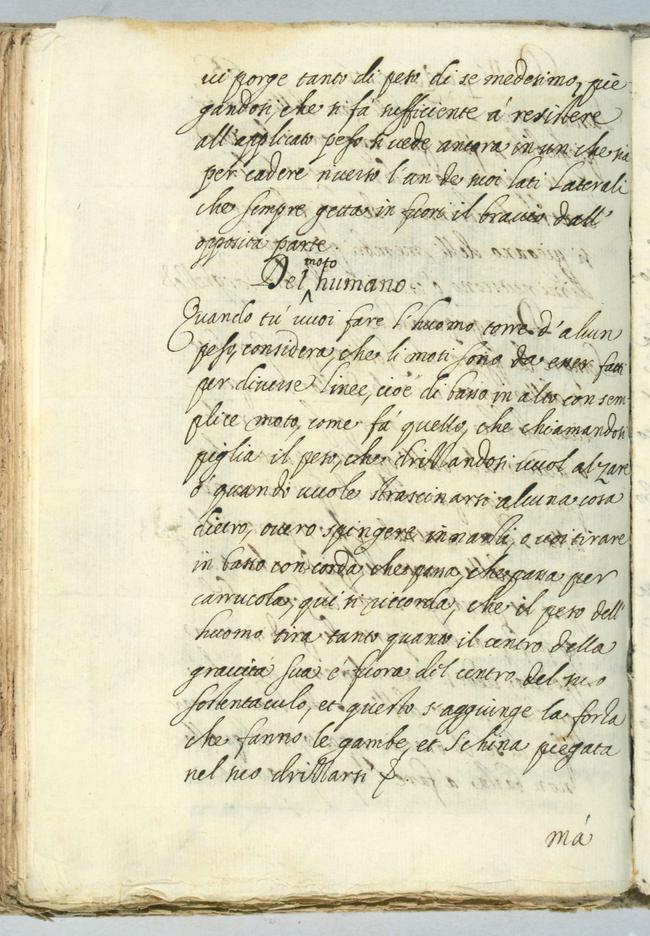 ui porge tanto di peso di se medesimo, pie
gandosi, che si fá sufficiente á resistere
all'applicato peso si uede ancora in un che sia
per cadere riuerso l'un de suoi lati Laterali
che sempre getta in fuori il braccio dall'
opposita parte
Del moto humano
Quando tú uuoi fare l'huomo torre d'alcun
peso, considera, che li moti sono da esser fatti
per diuerse linee, cioé di basso in alto con sem
plice moto, come fá quello, che chiamandosi
piglia il peso, che drizzandosi uuol alzare
ó quando uuole strascinarsi alcuna cosa
dietro, ouero spingere innanzi, o uoi tirare
in basso con corda, che passa, che passa per
carrucola, qui si riccorda, che il peso dell'
huomo tira tanto quanto il centro della
grauitá sua é fuora del centro del suo
sostentaculo, et questo s'aggiunge la forza
che fanno le gambe, et schina piegata
nel suo drizzarsi
má